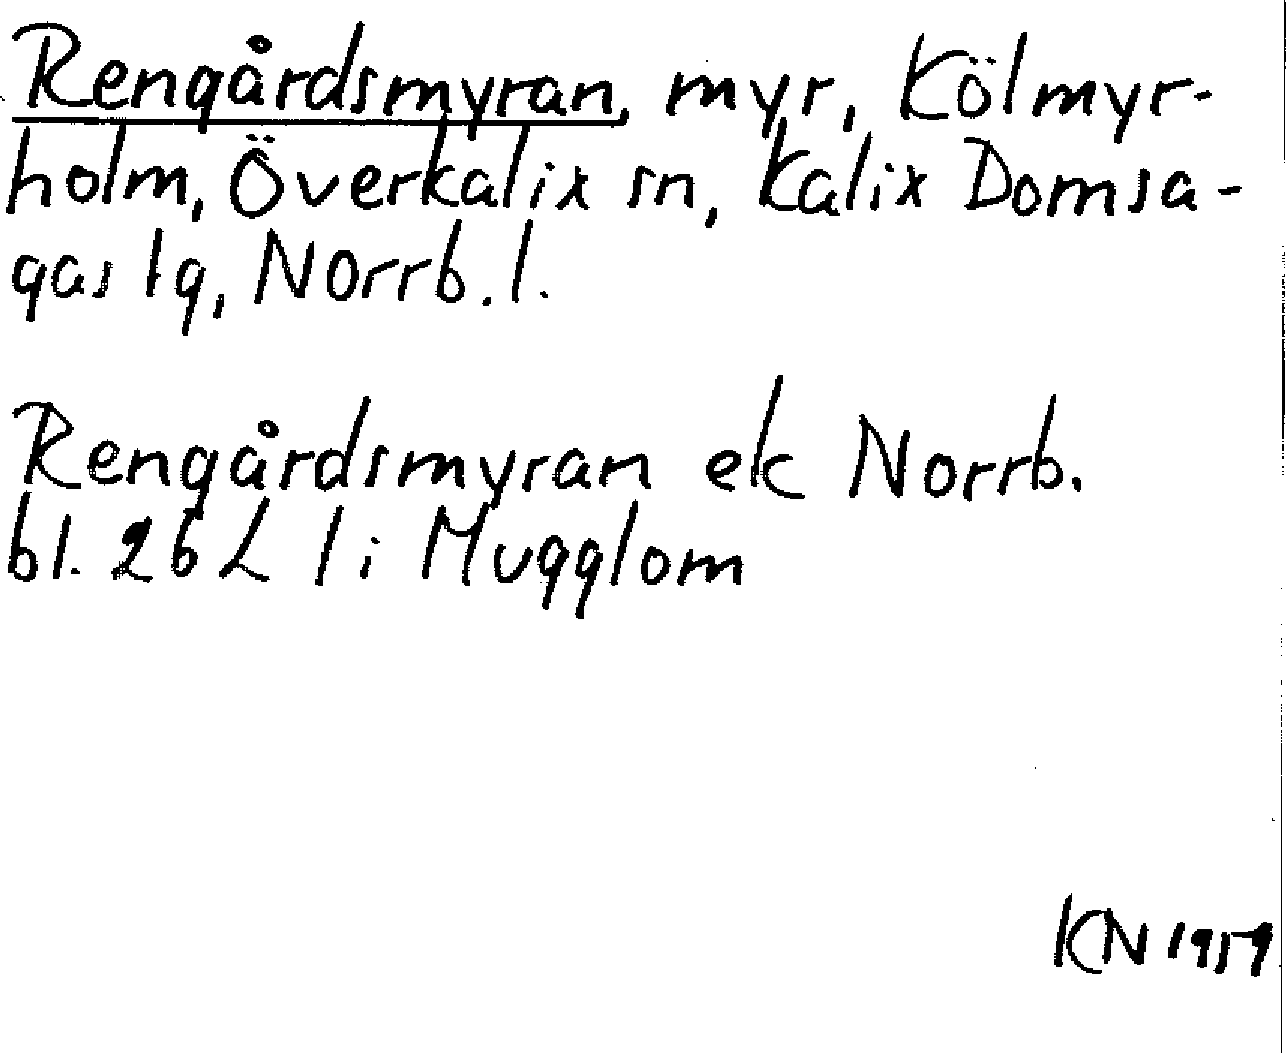 Rengårdsmyran, myr, Kölmyr-
holm, Överkalix sn, Kalix Domsa-
gas lg, Norrb. l.
Rengårdsmyran ek Norrb.
bl. 26 L l i Mugglom
KN 1959